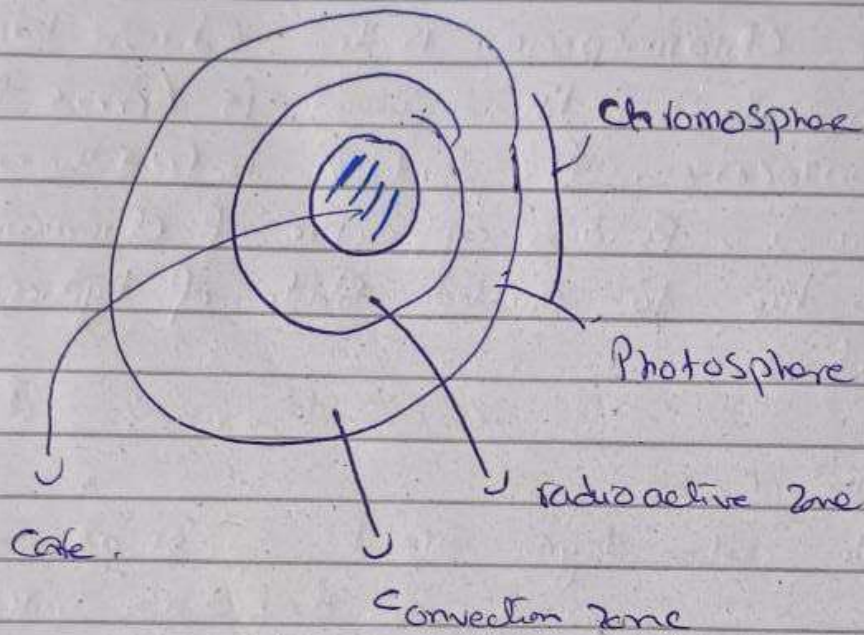 Chromosphere
Photosphere
radioactive zone
Core.
Convection zone